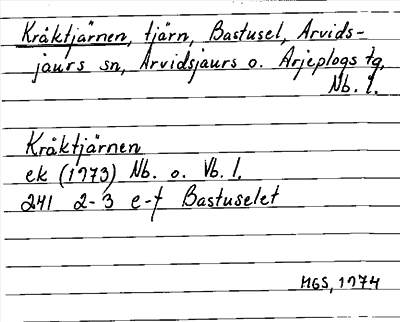 Kråktjärnen, tjärn, Bastusel, Arvids-
jaurs sn, Arvidsjaurs o. Arjeplogs tg,
Nb. l.
Kråktjärnen
ek (1973) Nb. o. Vb. l.
241 2-3 e-f Bastuselet
MGS, 1974